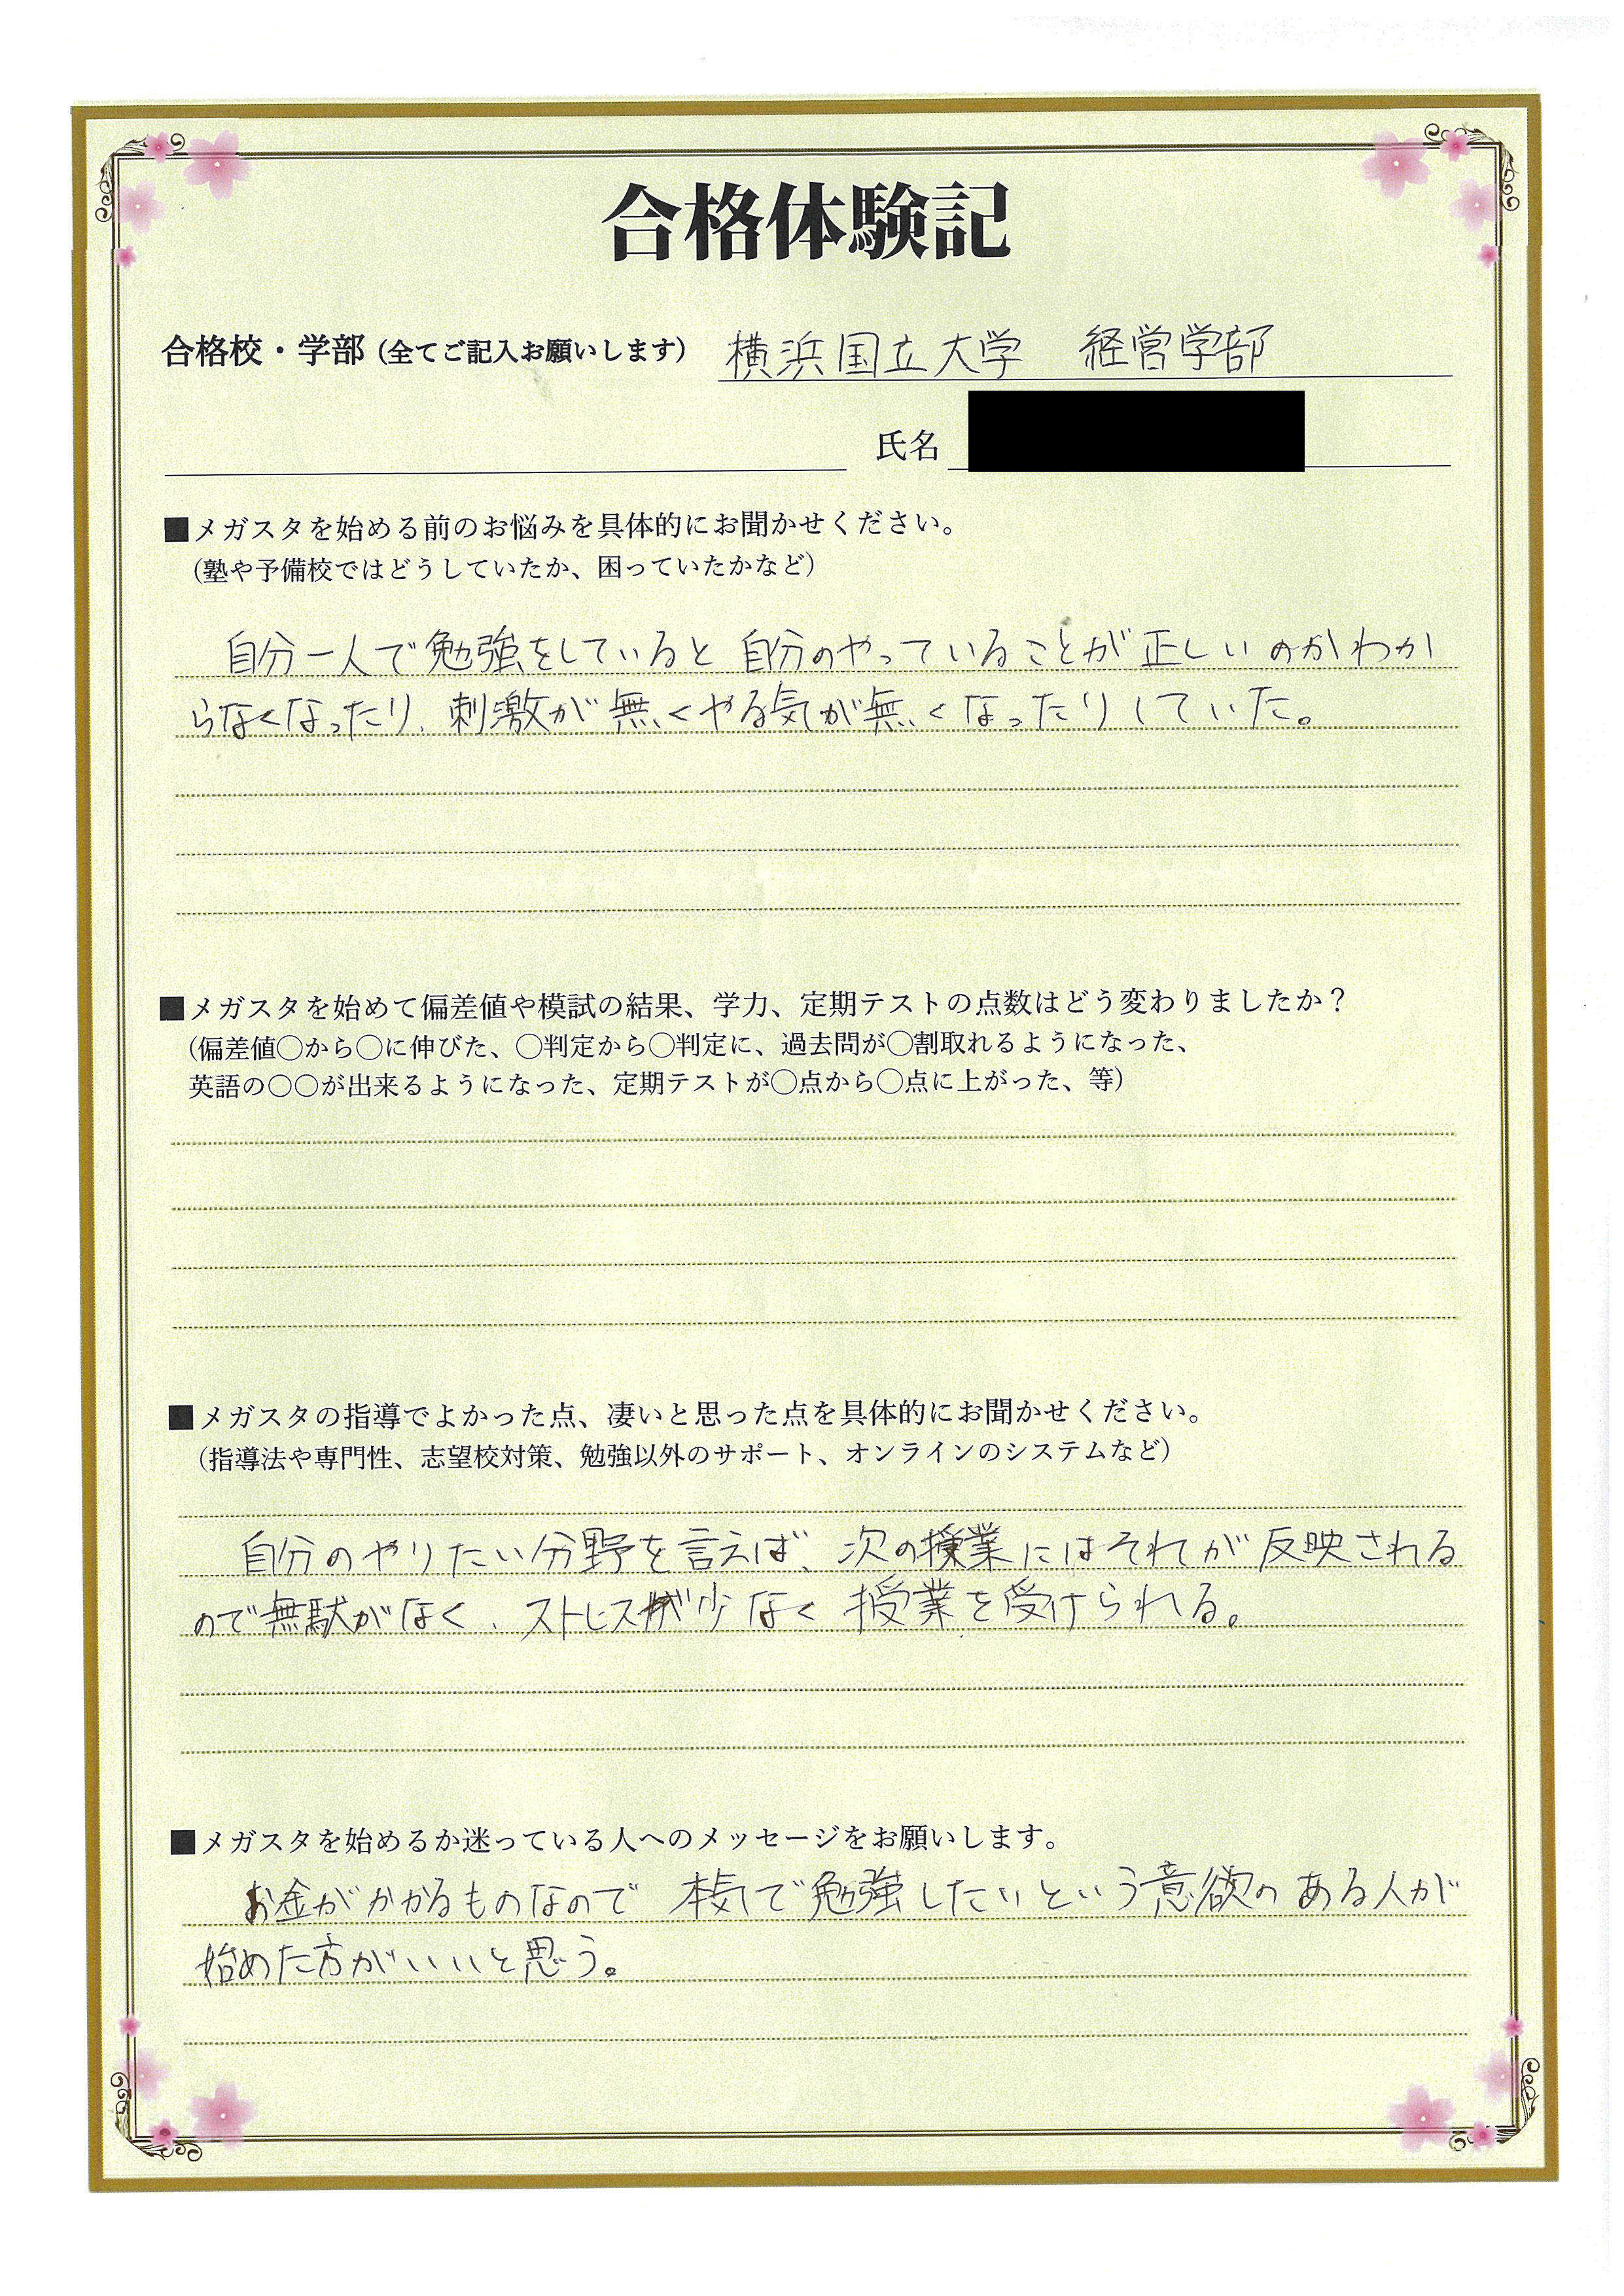 合格体験記
合格校・学部（全てご記入お願いします） 横浜国立大学 経営学部
氏名
■メガスタを始める前のお悩みを具体的にお聞かせください。
（塾や予備校ではどうしていたか、困っていたかなど）
自分一人で勉強をしていると自分のやっていることが正しいのかわか
らなくなったり、刺激が無くやる気が無くなったりしていた。
■メガスタを始めて偏差値や模試の結果、学力、定期テストの点数はどう変わりましたか？
（偏差値〇から〇に伸びた、〇判定から〇判定に、過去問が〇割取れるようになった、
英語の〇〇が出来るようになった、定期テストが〇点から〇点に上がった、等）
■メガスタの指導でよかった点、凄いと思った点を具体的にお聞かせください。
（指導法や専門性、志望校対策、勉強以外のサポート、オンラインのシステムなど）
自分のやりたい分野を言えば、次の授業にはそれが反映される
ので無駄がなく、ストレスが少なく授業を受けられる。
■メガスタを始めるか迷っている人へのメッセージをお願いします。
お金がかかるものなので本気で勉強したいという意欲のある人が
始めた方がいいと思う。